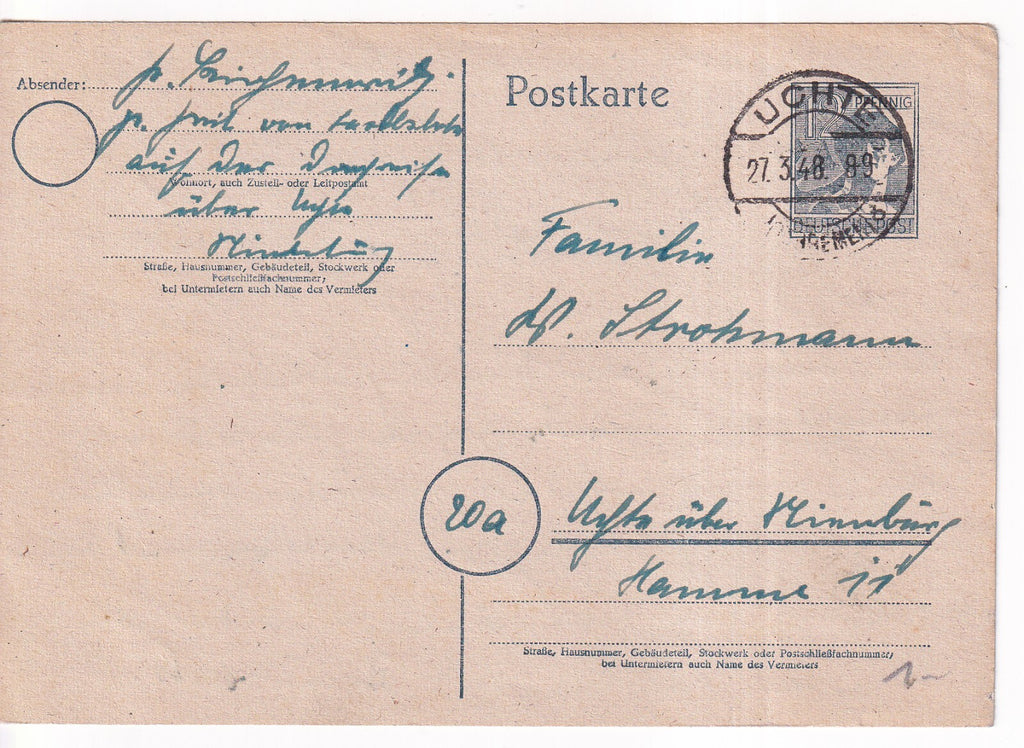 Absender:
auf der
Wohnort, auch Zustell- oder Leitpostamt
über Uchte
Nienburg
Straße, Hausnummer, Gebäudeteil, Stockwerk oder
Postschließfachnummer;
bei Untermietern auch Name des Vermieters
Postkarte
12 PFENNIG
DEUTSCHE POST
UCHTE
27.3.48. 8-9
(BREMEN) b
Familie
W. Strohmann
20a
Uchte über Nienburg
Hamme 11
Straße, Hausnummer, Gebäudeteil, Stockwerk oder Postschließfachnummer;
bei Untermietern auch Name des Vermieters